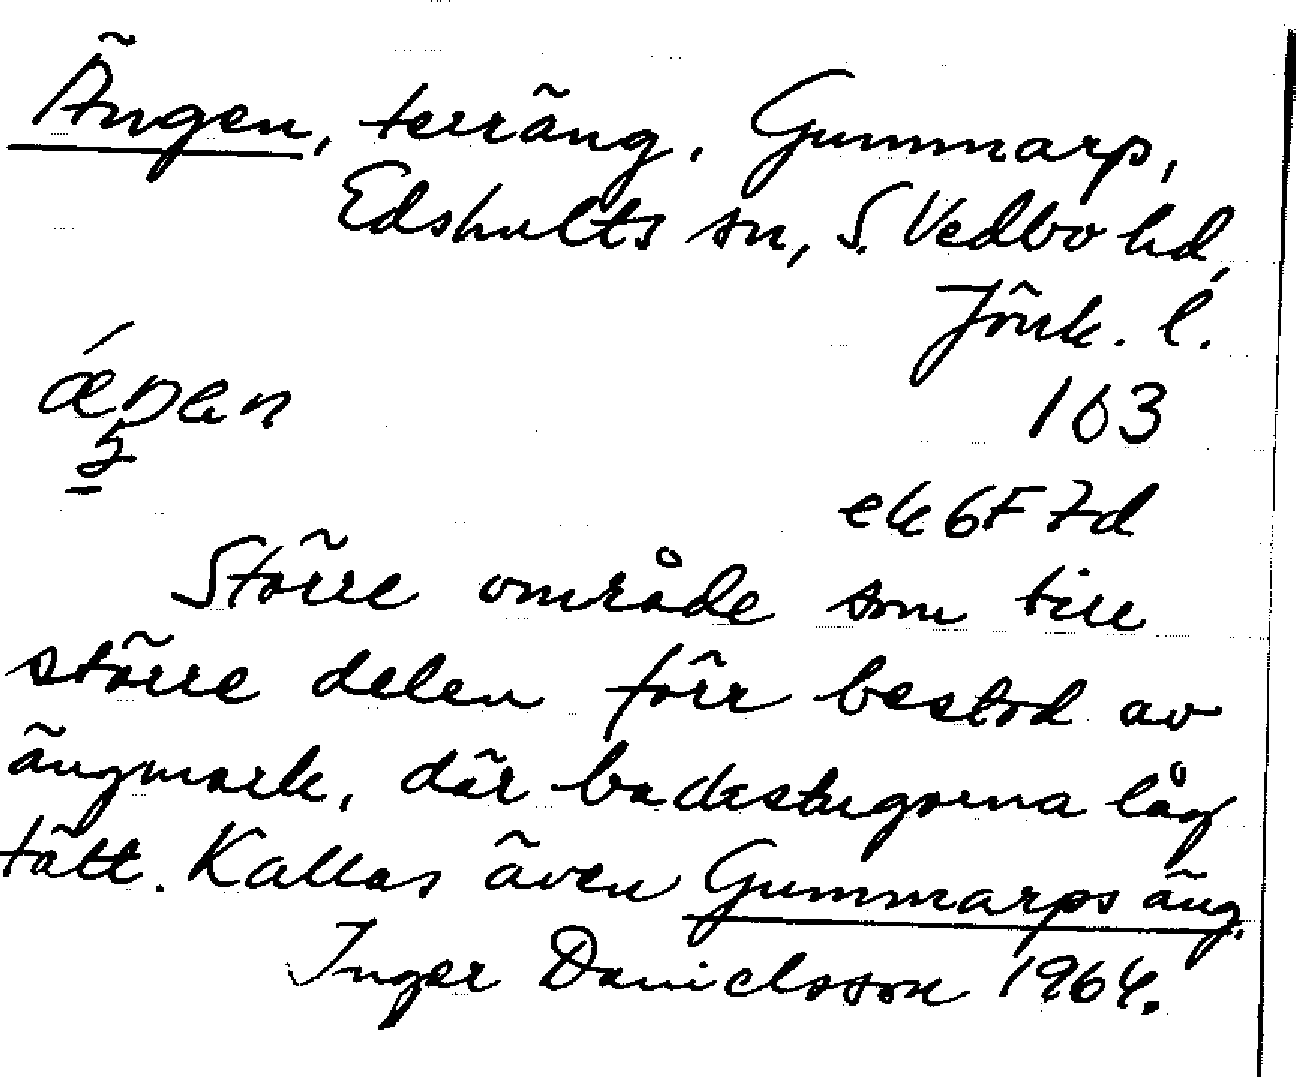 Ängen, terräng. Gummarp,
Edshults sn, S. Vedbo hd,
Jönk. l.
103
ek 6F 7d
Större område som till
större delen förr bestod av
ängmark, där backstugorna låg
tätt. Kallas även Gummarps äng.
Inger Danielsson 1964.